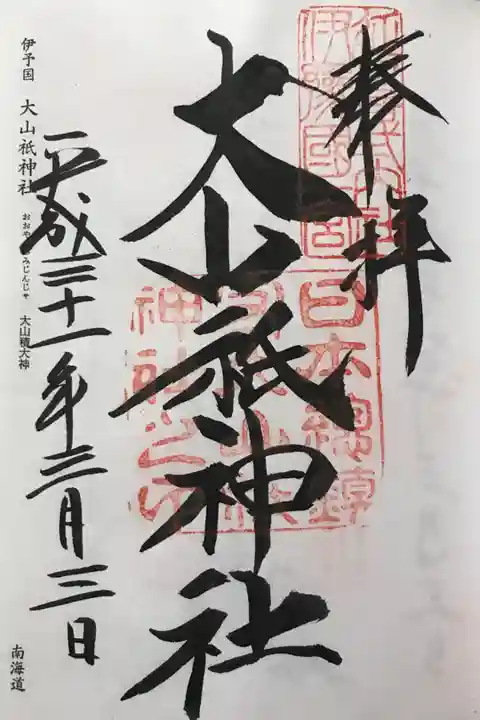 奉拝
伊豫國一宮
日本總鎮
大山祇神社
神社之印
平成三十一年三月三日
伊予国 大山祇神社 大山積大神
おおやまづみじんじゃ
南海道